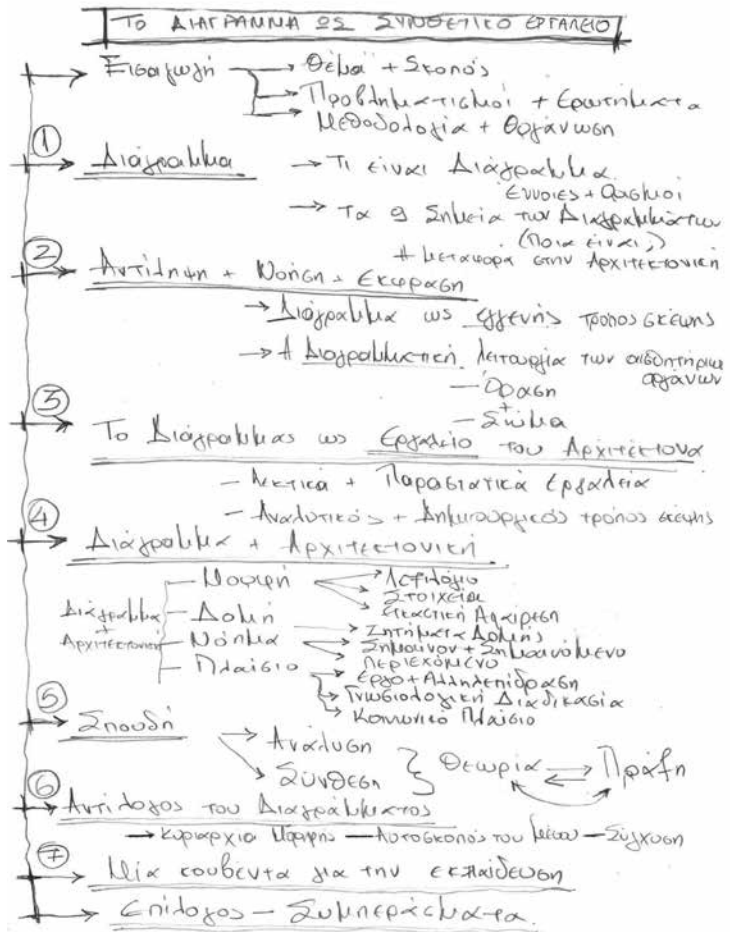 ΤΟ ΔΙΑΓΡΑΜΜΑ ΩΣ ΣΥΝΘΕΤΙΚΟ ΕΡΓΑΛΕΙΟ
Εισαγωγή → Θέμα + Σκοπός
→ Προβληματισμοί + Ερωτήματα
→ Μεθοδολογία + Οργάνωση
① Διάγραμμα → Τι είναι Διάγραμμα
Έννοιες + Ορισμοί
→ Τα 9 Σημεία των Διαγραμμάτων
(Ποια είναι;)
② Η μεταφορά στην Αρχιτεκτονική
Αντίληψη + Νόηση + Έκφραση
→ Διάγραμμα ως εγγενής τρόπος σκέψης
→ Η Διαγραμματική λειτουργία των αισθητήριων
οργάνων
— Όραση
+
③ — Σώμα
Το Διάγραμμας ως Εργαλείο του Αρχιτέκτονα
— Λεκτικά + Παραστατικά εργαλεία
— Αναλυτικός + Δημιουργικός τρόπος σκέψης
④ Διάγραμμα + Αρχιτεκτονική
Διάγραμμα + Αρχιτεκτονική
— Μορφή → Λεξιλόγιο
→ Στοιχεία
→ Εικαστική Αφαίρεση
— Δομή → Ζητήματα Δομής
— Νόημα → Σημαίνον + Σημαινόμενο
→ Περιεχόμενο
— Πλαίσιο → Έργο + Αλληλεπίδραση
→ Γνωσιολογική Διαδικασία
→ Κοινωνικό Πλαίσιο
⑤ Σπουδή → Ανάλυση
→ Σύνθεση } Θεωρία ⇄ Πράξη
⑥ Αντίλογος του Διαγράμματος
→ Κυριαρχία Μορφής — Αυτοσκοπός του μέσου — Σύγχυση
⑦ Μία κουβέντα για την εκπαίδευση
Επίλογος — Συμπεράσματα.